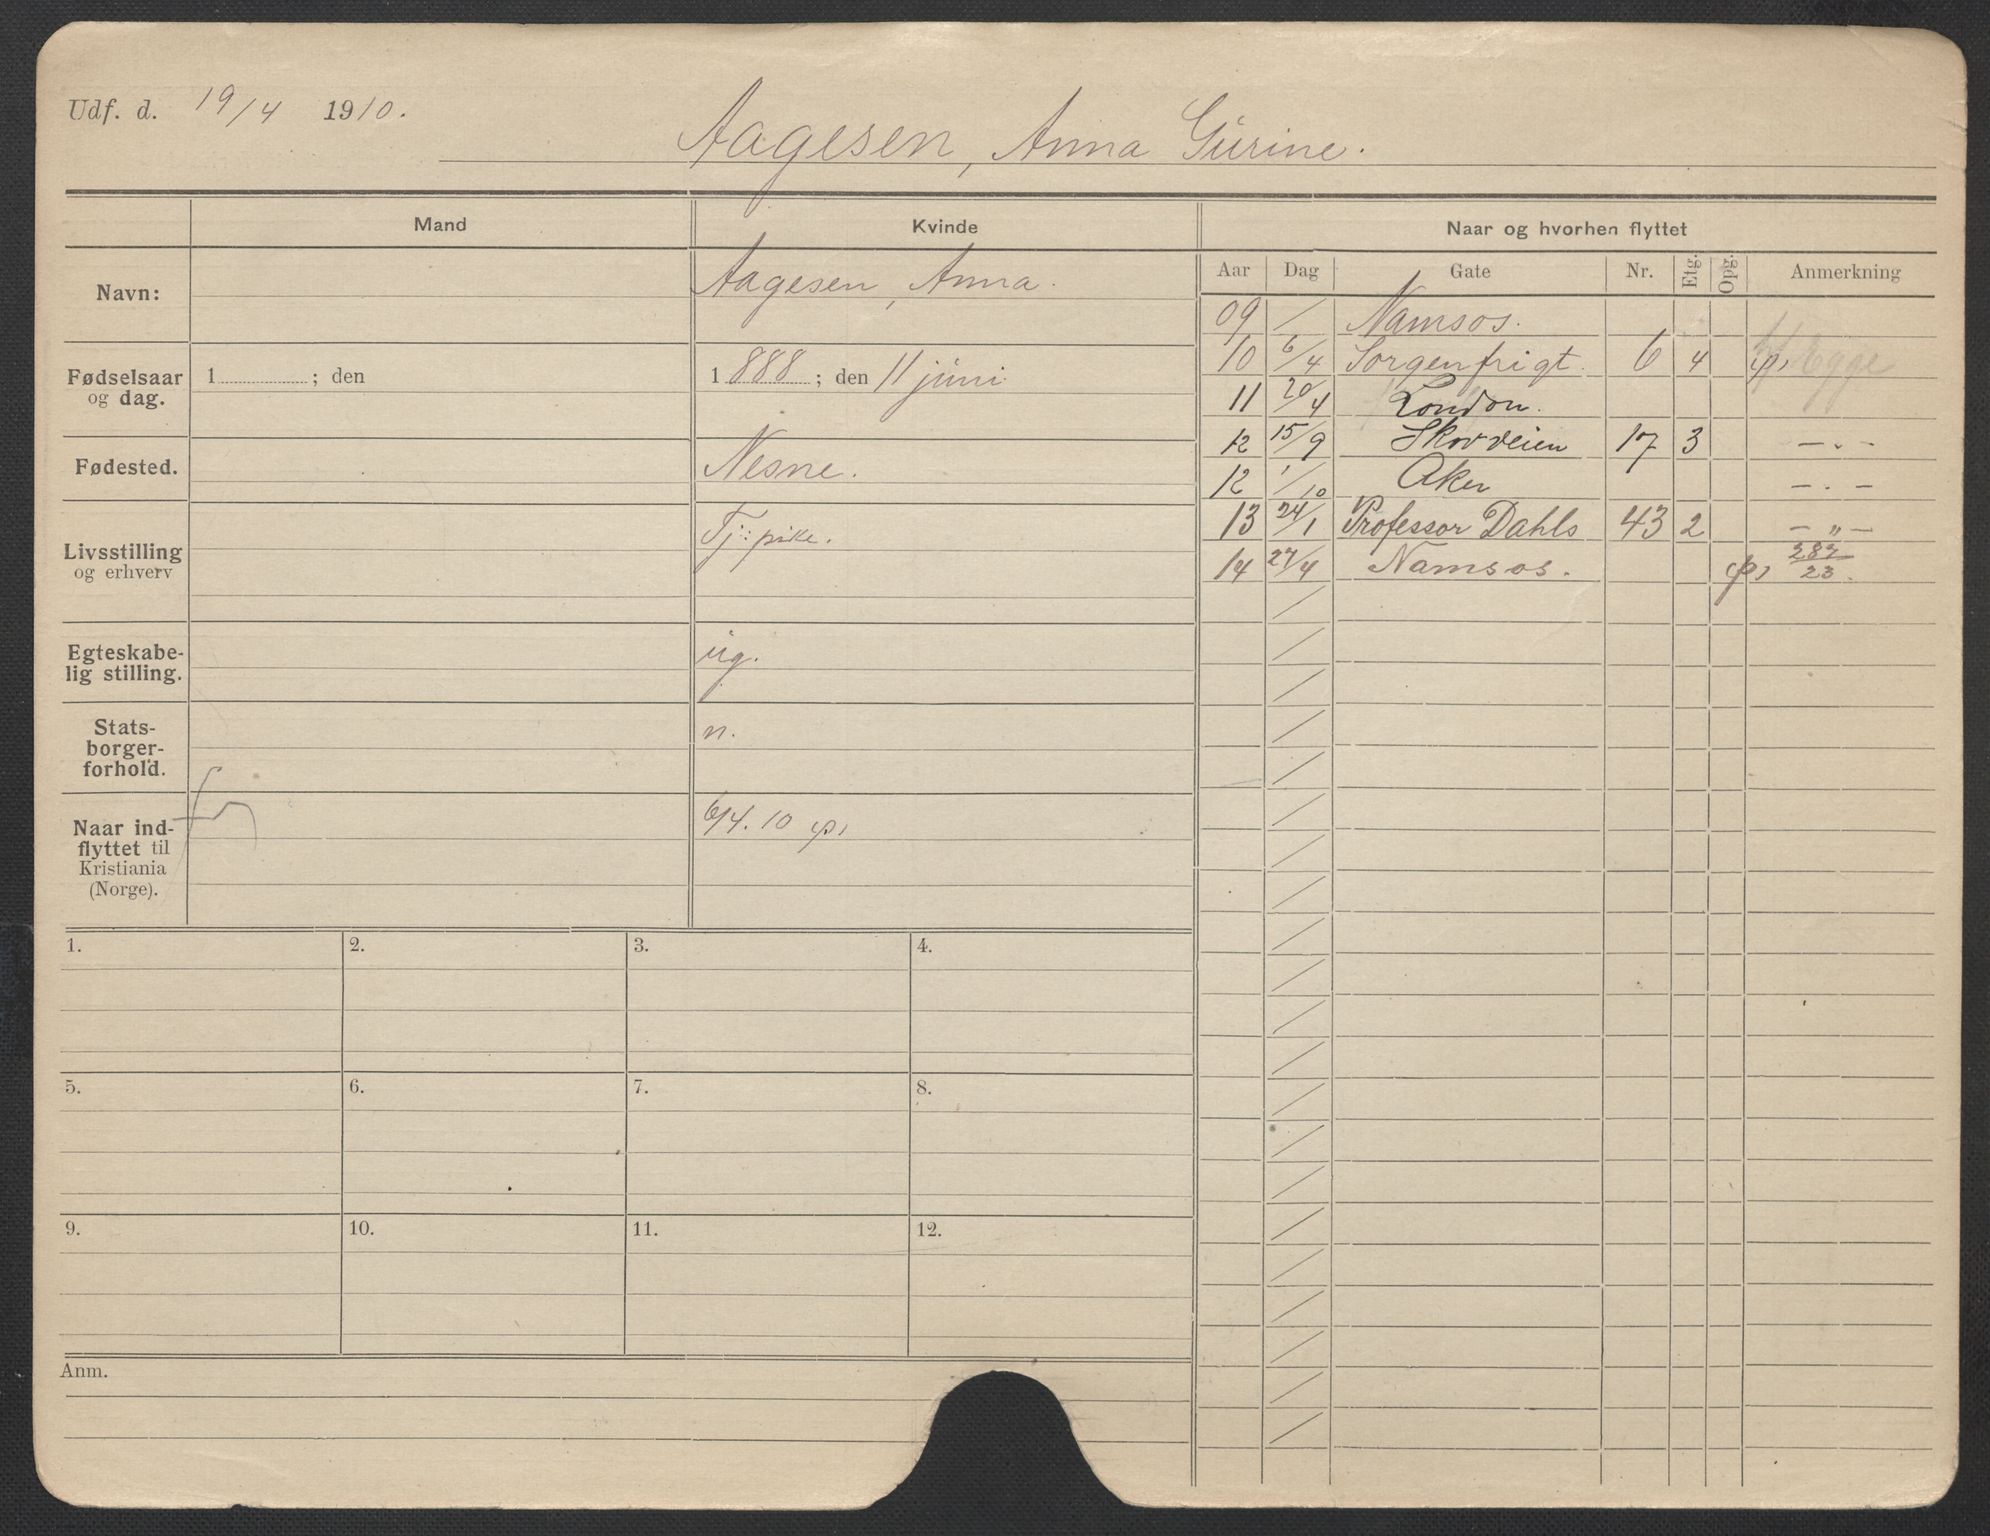 Udf. d. 19/4 1910.
Aagesen, Anna Gurine.
Mand Kvinde Naar og hvorhen flyttet
Aar Dag Gate Nr. Etg. Opg. Anmerkning
Navn: Aagesen, Anna.
Fødselsaar og dag. 1 ; den 1888 ; den 11 juni
Fødested. Nesne.
Livsstilling og erhverv Tj: pike.
Egteskabe-
lig stilling. ug.
Stats-
borger-
forhold. n.
Naar ind-
flyttet til
Kristiania
(Norge). 6/4. 10 p,
09 / Namsos.
10 6/4 Sorgenfrigt. 6 4 p, Egge
11 20/4 London.
12 15/9 Skovveien 17 3 — . —
12 1/10 Aker — . —
13 24/1 Professor Dahls 43 2 — „ —
14 27/4 Namsos. p, 287/23.
1. 2. 3. 4.
5. 6. 7. 8.
9. 10. 11. 12.
Anm.